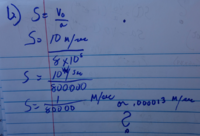 b) S = V₀/a
S = 10 m/sec
8 x 10⁶
S =
800000
S = 1/80000 m/sec or .000013 m/sec
?